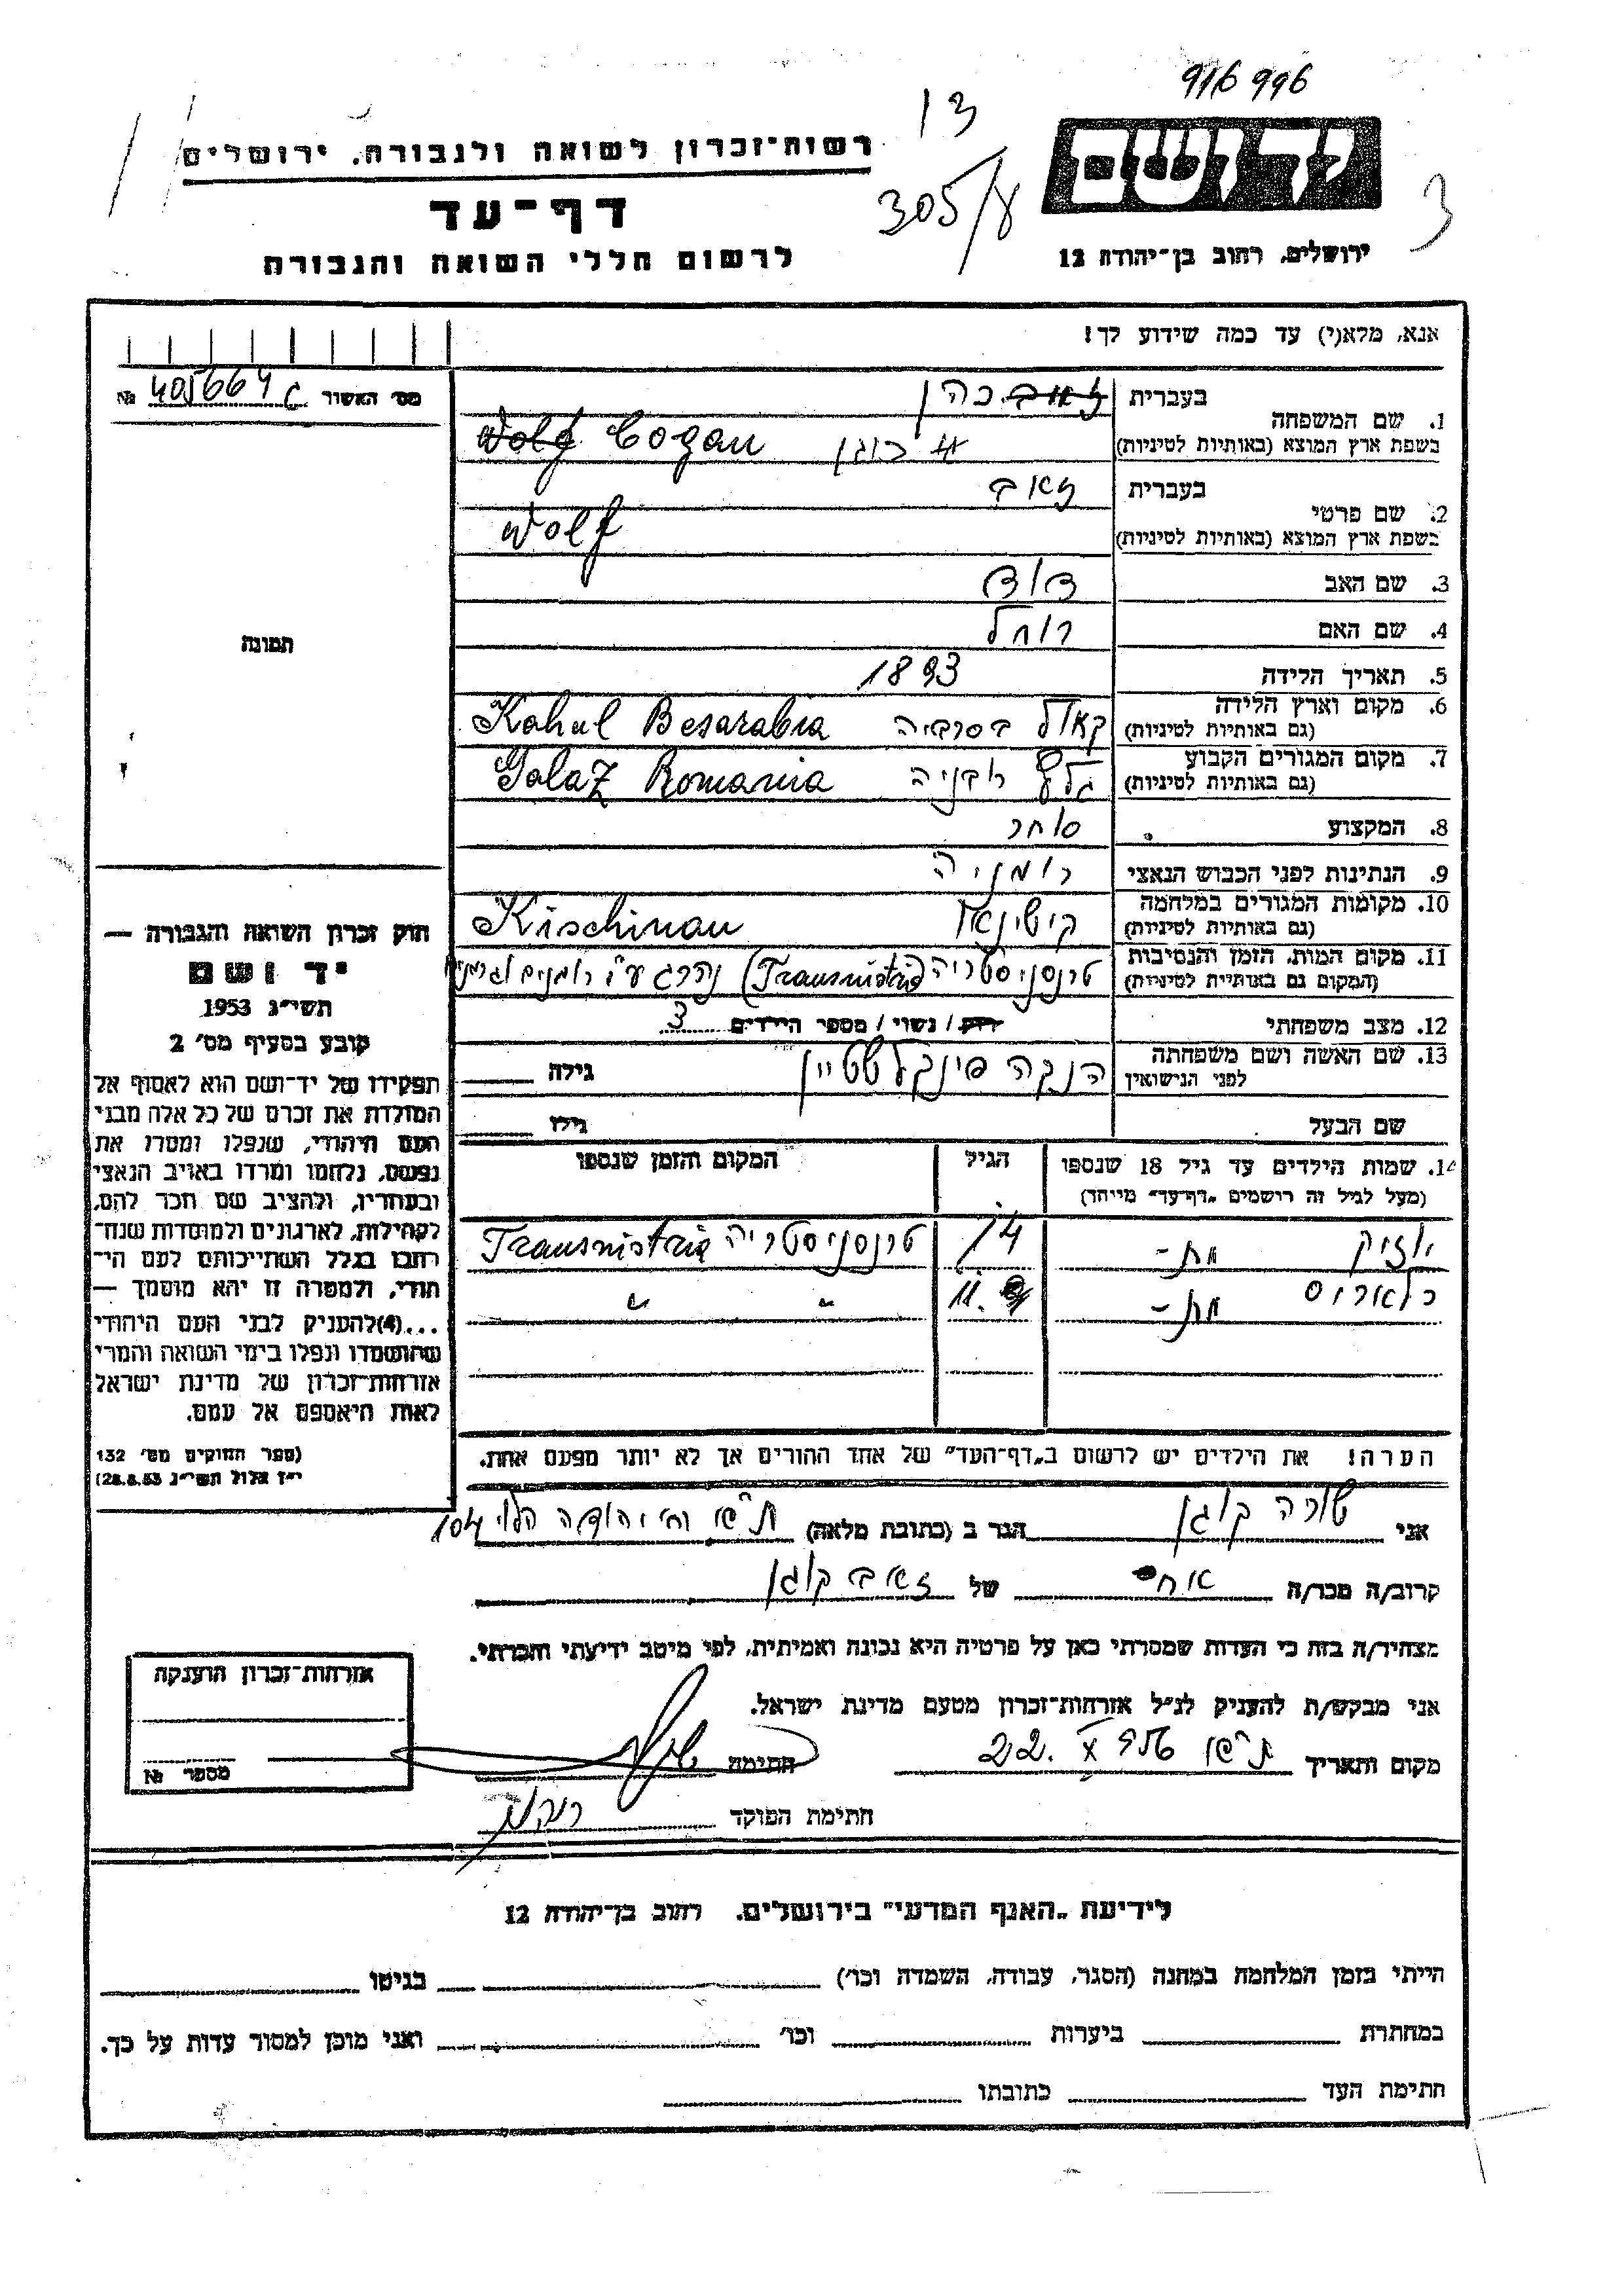 916996
13
305/ע
3
יד ושם
ירושלים, רחוב בן־יהודה 12
רשות־זכרון לשואה ולגבורה, ירושלים
דף־עד
לרשום חללי השואה והגבורה
אנא, מלא(י) עד כמה שידוע לך!
מס׳ האשור № 405664 C
1. שם המשפחה
בעברית זאב כהן
בשפת ארץ המוצא (באותיות לטיניות) כוגן Wolf Cogan
2. שם פרטי
בעברית זאב
בשפת ארץ המוצא (באותיות לטיניות) Wolf
3. שם האב דוד
4. שם האם רוחל
5. תאריך הלידה 1893
6. מקום וארץ הלידה
(גם באותיות לטיניות) קאול בסרביה Kahul Besarabia
7. מקום המגורים הקבוע
(גם באותיות לטיניות) גלץ Galaz Romania
8. המקצוע סוחר
9. הנתינות לפני הכבוש הנאצי רומניה
10. מקומות המגורים במלחמה
(גם באותיות לטיניות) קישינאו Kischinau
11. מקום המות, הזמן והנסיבות
(המקום גם באותיות לטיניות) טרנסניסטריה (Transnistria) נהרג ע״י רומנים
12. מצב משפחתי רווק / נשוי / מספר הילדים 3
13. שם האשה ושם משפחתה
לפני הנישואין הנקה פינקלשטיין גילה
שם הבעל גילו
14. שמות הילדים עד גיל 18 שנספו
(מעל לגיל זה רושמים „דף־עד״ מיוחד)
הגיל
המקום והזמן שנספו
יוזיק מת- 14 טרנסניסטריה Transnistria
כלאריס מת- 11. " "
הערה! את הילדים יש לרשום ב„דף־העד״ של אחד ההורים אך לא יותר מפעם אחת.
תמונה
חוק זכרון השואה והגבורה —
יד ושם
תשי״ג 1953
קובע בסעיף מס׳ 2
תפקידו של יד־ושם הוא לאסוף אל
המולדת את זכרם של כל אלה מבני
העם היהודי, שנפלו ומסרו את
נפשם, נלחמו ומרדו באויב הנאצי
ובעוזריו, ולהציב שם וזכר להם,
לקהילות, לארגונים ולמוסדות שנח־
רבו בגלל השתייכותם לעם הי־
הודי, ולמטרה זו יהא מוסמך —
...(4)להעניק לבני העם היהודי
שהושמדו ונפלו בימי השואה והמרי
אזרחות־זכרון של מדינת ישראל
לאות היאספם אל עמם.
(ספר החוקים מס׳ 132
י״ז אלול תשי״ג 28.8.53)
אני שורה קוגן הגר ב (כתובת מלאה) ת״א רח׳ יהודה הלוי 104
קרוב/ה מכר/ה אח של זאב קוגן
מצהיר/ה בזה כי העדות שמסרתי כאן על פרטיה היא נכונה ואמיתית, לפי מיטב ידיעתי והכרתי.
אני מבקש/ת להעניק לנ״ל אזרחות־זכרון מטעם מדינת ישראל.
מקום ותאריך ת״א 22. X חתימה
חתימת הפוקד
אזרחות־זכרון הוענקה
מספר №
לידיעת „האגף המדעי״ בירושלים, רחוב בן־יהודה 12
הייתי בזמן המלחמה במחנה (הסגר, עבודה, השמדה וכו׳) בגיטו
במחתרת ביערות וכו׳ ואני מוכן למסור עדות על כך.
חתימת העד כתובתו